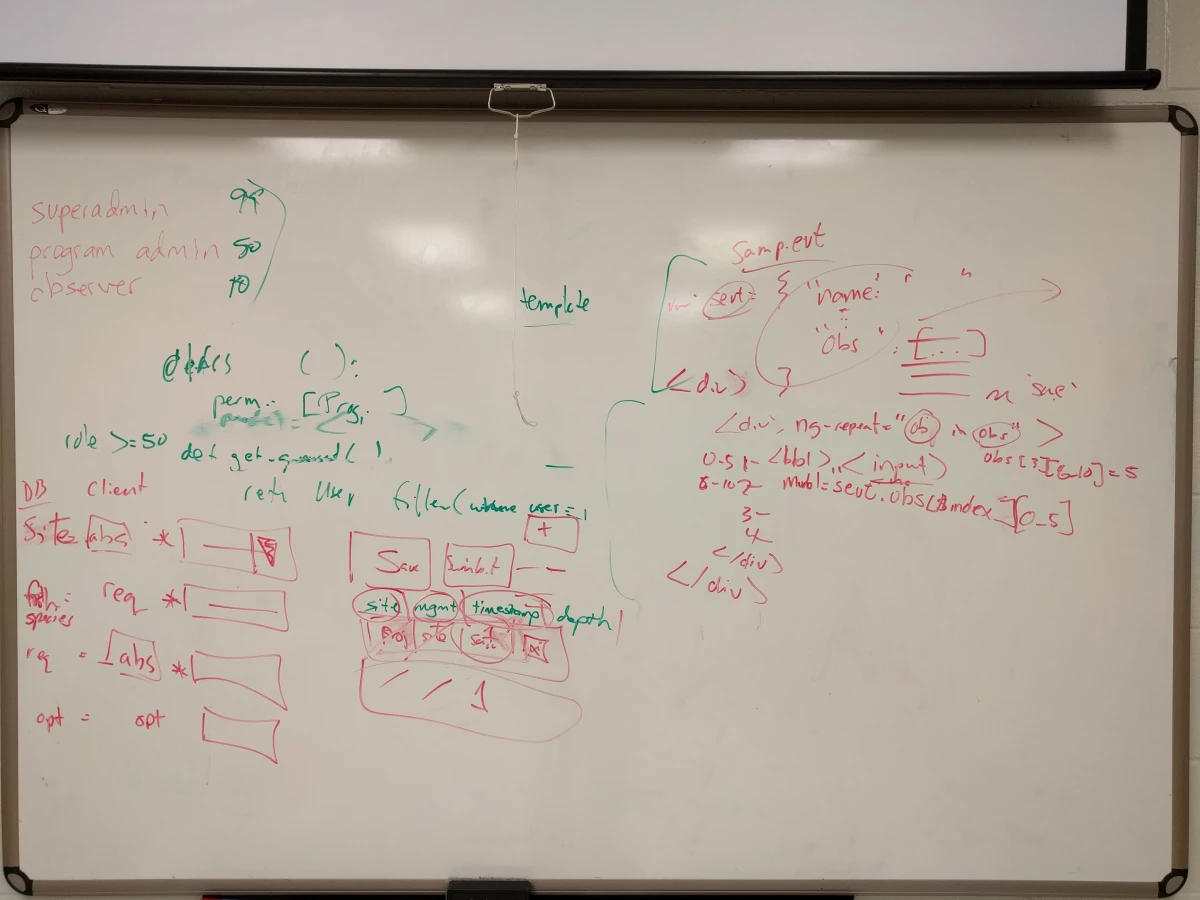 superadmin 99
program admin 50
observer 10
template
( ):
perm: [Prog. ]
role >=50 def get_ ( ),
retn User filter(where user=1
DB client
Site abs *
req *
species
req = abs *
opt = opt
+
Save Submit — —
site mgmt timestamp depth
Proj site
1
samp.evt
sevt= { "name: " "
"Obs ": [...]
<div> }
'save'
<div, ng-repeat="ob in obs" >
0-5 1- <lbl>, <input>
obs[3][6-10]=5
6-10 2- Model=sevt.obs[$index][0_5]
3-
4-
</div>
</div>